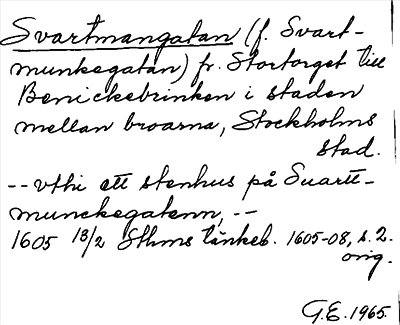 Svartmangatan (f. Svart-
munkegatan) fr. Stortorget till
Benickebrinken i staden
mellan broarna, Stockholms
stad.
-- vthi ett stenhus på Suartt-
munckegatenn, --
1605 18/2 Sthms tänkeb. 1605-08, s. 2.
orig.
G.E. 1965.